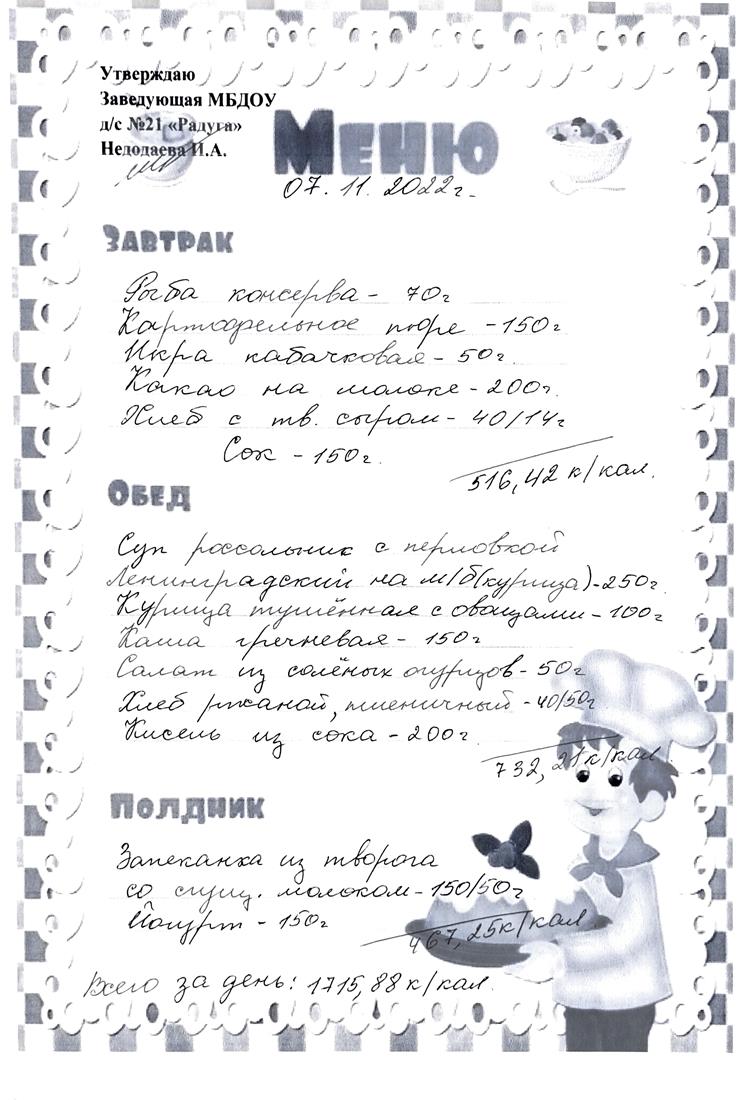 Утверждаю
Заведующая МБДОУ
д/с №21 «Радуга»
Недодаева И.А.
Меню
07.11.2022г.
Завтрак
Рыба консерва - 70г
Картофельное пюре - 150г
Икра кабачковая - 50г
Какао на молоке - 200г.
Хлеб с тв. сыром - 40/14г
Сок - 150г.
516,42 к/кал.
Обед
Суп россольник с перловкой
Ленинградский на м/б(курица) - 250г
Курица тушённая с оващами - 100г
Каша гречневая - 150г
Салат из солёных огурцов - 50г
Хлеб ржаной, пшеничный - 40/50г
Кисель из сока - 200г
732,21 к/кал
Полдник
Запеканка из творога
со сгущ. молоком - 150/50г
Йогурт - 150г
467,25 к/кал
Всего за день: 1715,88 к/кал.